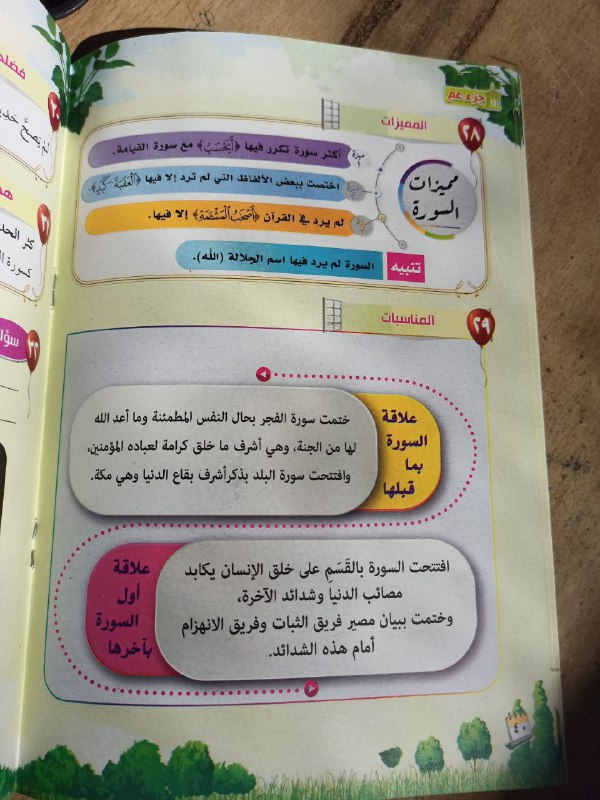 جزء عم
٢٨
المميزات
مميزات
السورة
ميزة
أكثر سورة تكرر فيها ﴿أَيَحْسَبُ﴾ مع سورة القيامة.
اختصت ببعض الألفاظ التي لم ترد إلا فيها ﴿الْعَقَبَةَ - كَبَدٍ﴾.
لم يرد في القرآن ﴿أَصْحَابُ الْمَشْأَمَةِ﴾ إلا فيها.
تنبيه
السورة لم يرد فيها اسم الجلالة (الله).
٢٩
المناسبات
علاقة
السورة
بما
قبلها
ختمت سورة الفجر بحال النفس المطمئنة وما أعد الله
لها من الجنة، وهي أشرف ما خلق كرامة لعباده المؤمنين،
وافتتحت سورة البلد بذكر أشرف بقاع الدنيا وهي مكة.
علاقة
أول
السورة
بآخرها
افتتحت السورة بالقَسَمِ على خلق الإنسان يكابد
مصائب الدنيا وشدائد الآخرة،
وختمت ببيان مصير فريق الثبات وفريق الانهزام
أمام هذه الشدائد.
٤٠
فضله
٣٠
لم يصحَّ
٣١
كثر الحد
كسورة
٣٢
سؤا